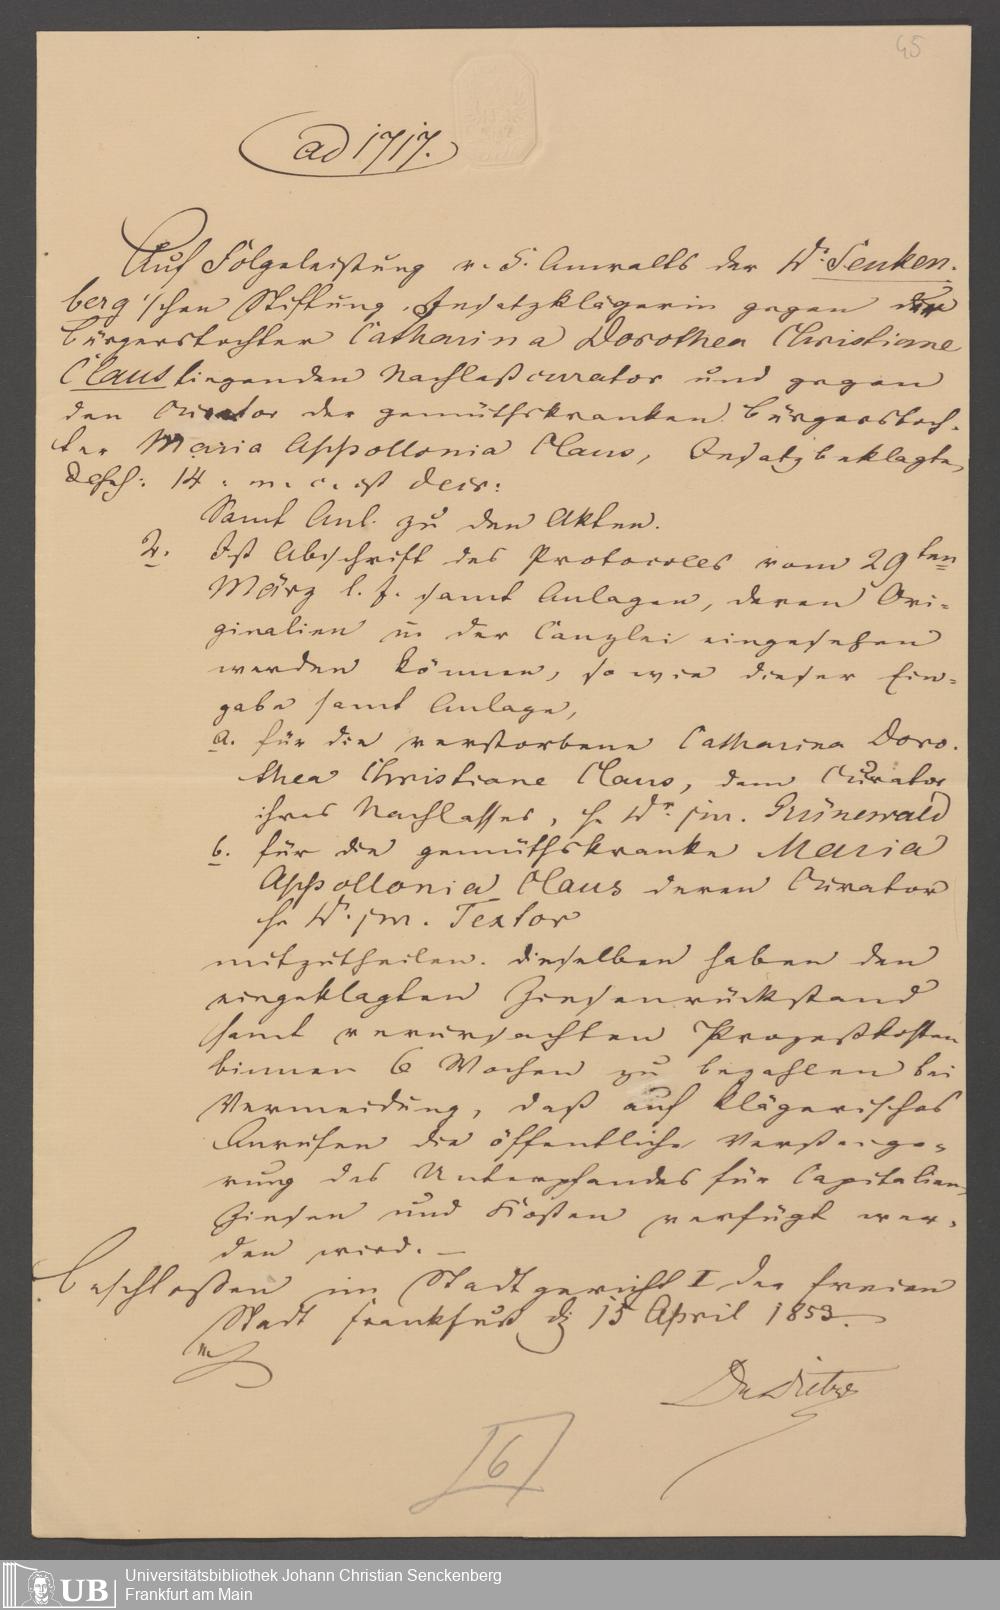 45
ad 1717.
Auf Folgeleistung v. S. Anwalts der Dr. Senken-
berg'schen Stiftung, Insatzklägerin gegen der
Bürgerstochter Catharina Dorothea Christiane
Claus liegenden Nachlaßcurator und gegen
den Curator der gemüthskranken Bürgerstoch-
ter Maria Appollonia Claus, Insatzbeklagte,
14 ist Decr:
Samt Anl. zu den Akten.
2. Ist Abschrift des Protocolles vom 29ten
März l. J. samt Anlagen, deren Ori-
ginalien in der Canzlei eingesehen
werden können, so wie dieser Ein-
gabe samt Anlage,
a. für die verstorbene Catharina Doro-
thea Christiane Claus, dem Curator
ihres Nachlasses, H. Dr. jur. Grünewald
b. für die gemüthskranke Maria
Appollonia Claus deren Curator
H. Dr. jur. Textor
mitzutheilen. Dieselben haben den
eingeklagten Zinsenrückstand
samt verursachten Prozeßkosten
binnen 6 Wochen zu bezahlen bei
Vermeidung, daß auf klägerisches
Anrufen die öffentliche Versteige-
rung des Unterpfandes für Capitalien,
Zinsen und Kosten verfügt wer-
den wird. —
Beschlossen im Stadtgericht I der freien
Stadt Frankfurt d. 15 April 1853.
6
Universitätsbibliothek Johann Christian Senckenberg
Frankfurt am Main
UB